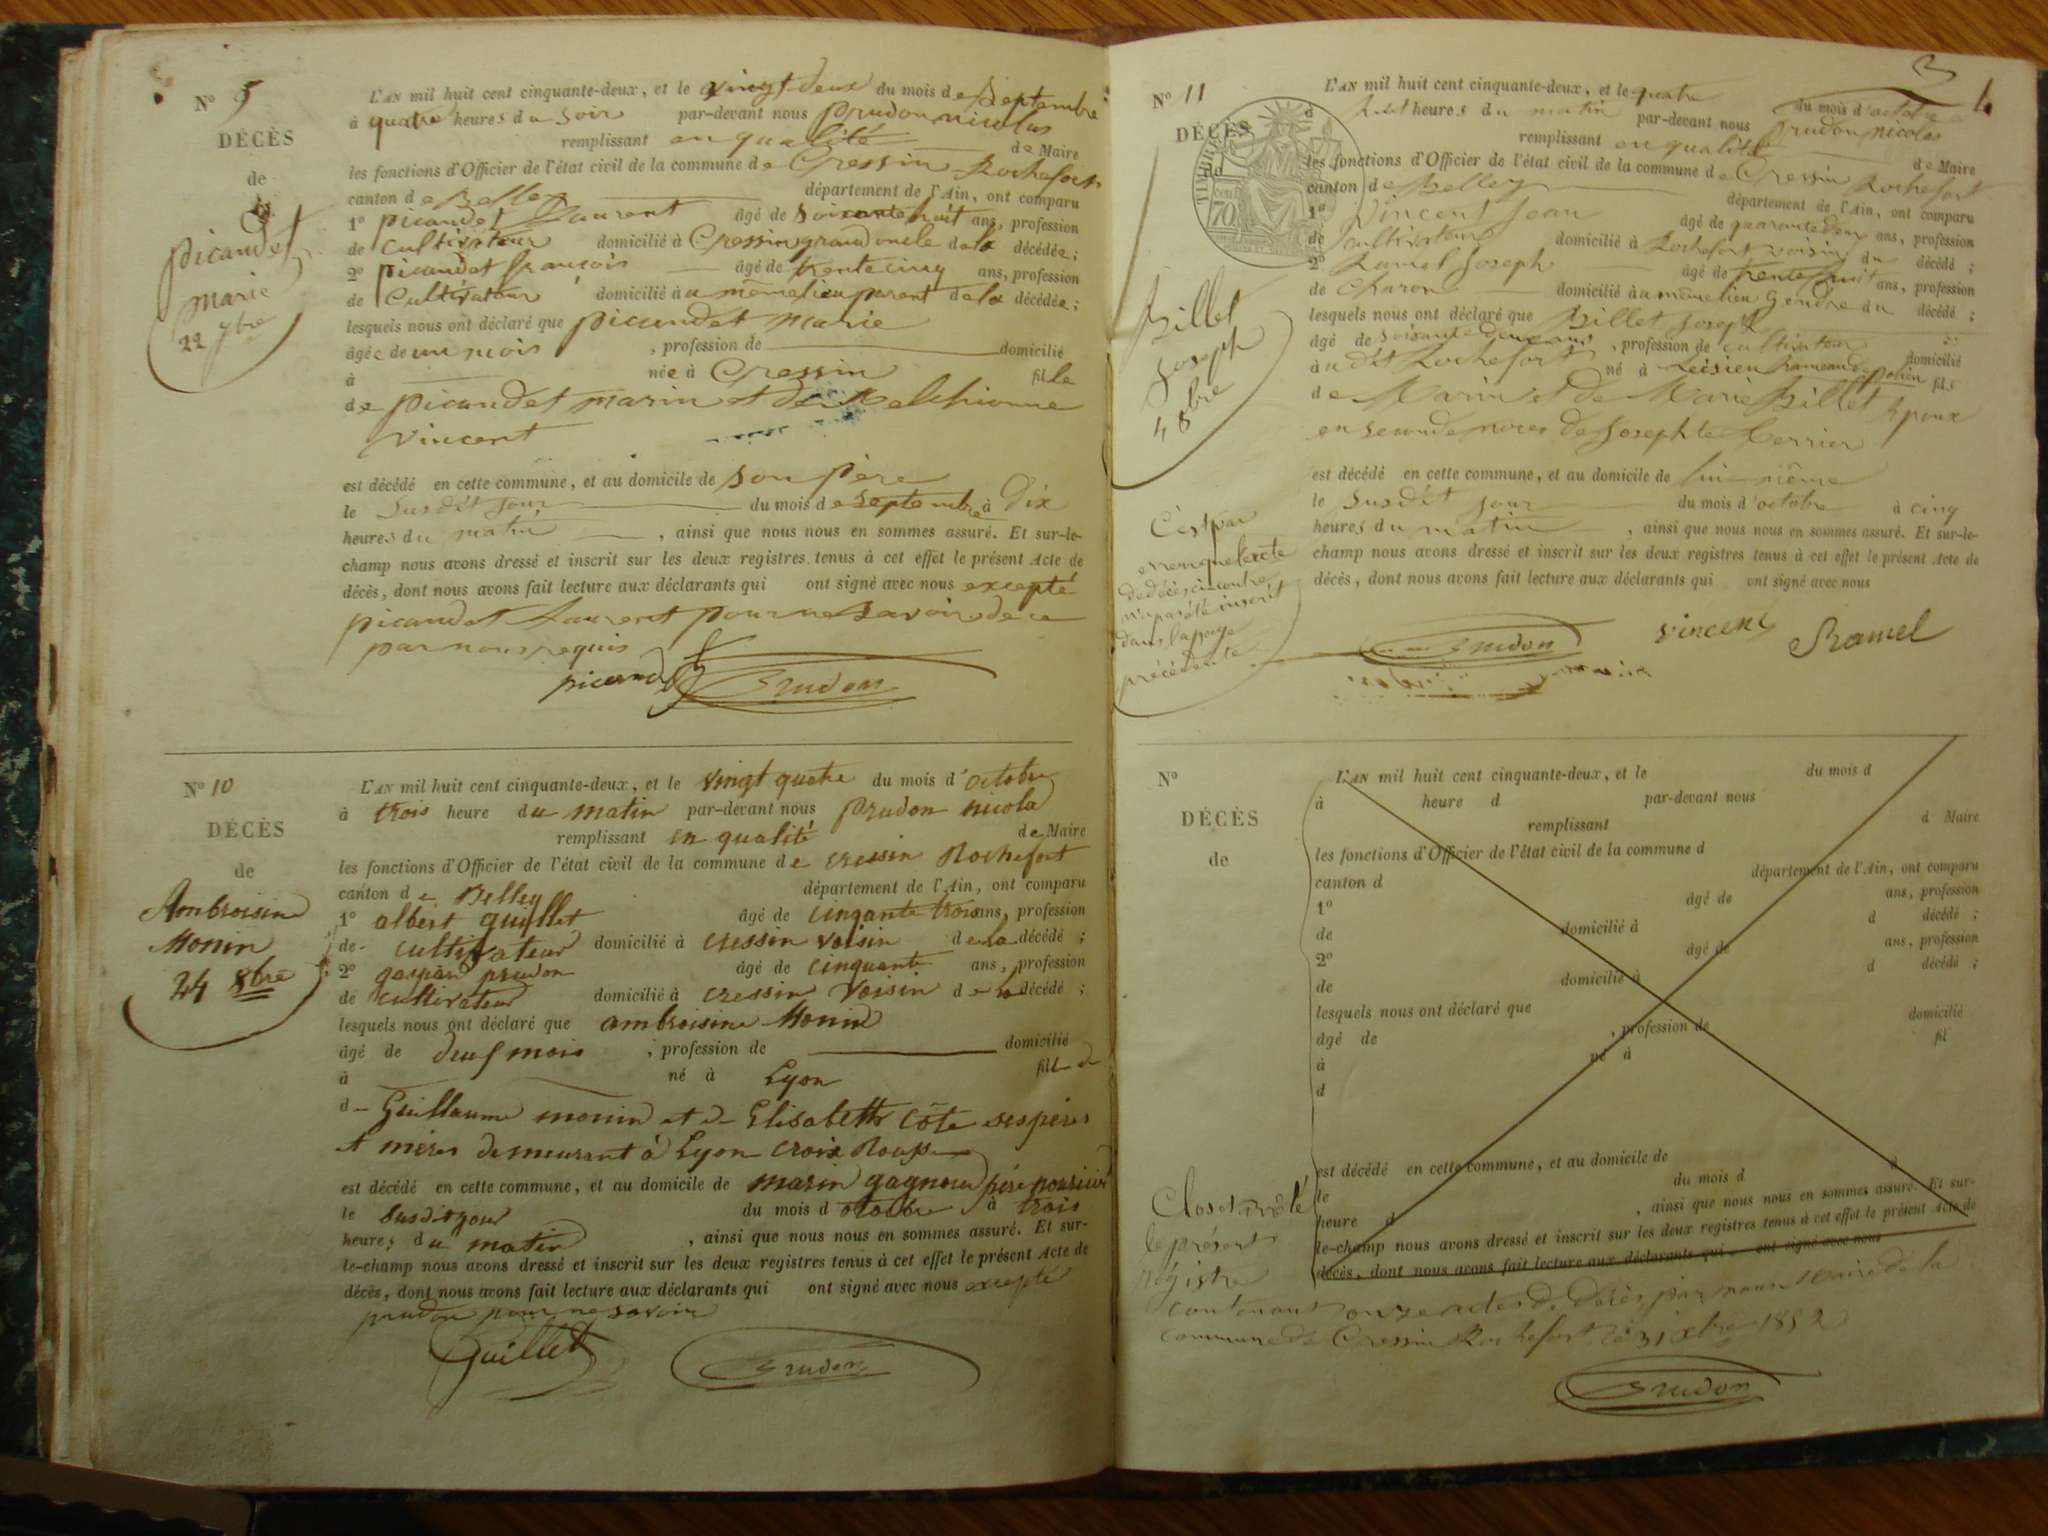 N° 9
DÉCÈS
de
picandet
marie
22 7bre
L'AN mil huit cent cinquante-deux, et le vingt deux du mois de Septembre
à quatre heures du soir par-devant nous prudon nicolas
remplissant en qualité de Maire
les fonctions d'Officier de l'état civil de la commune de Cressin Rochefort
canton de Belley département de l'Ain, ont comparu
1° picandet Laurent âgé de soixante huit ans, profession
de cultivateur domicilié à Cressin grand oncle de la décédée ;
2° picandet francois âgé de trente cinq ans, profession
de Cultivateur domicilié au même lieu parent de la décédée ;
lesquels nous ont déclaré que picandet marie
âgée de un mois , profession de domicilié
à née à Cressin fille
de picandet marin et de Melchionne
vincent
est décédé en cette commune, et au domicile de son père
le susdit jour du mois de septembre à Dix
heures du matin , ainsi que nous nous en sommes assuré. Et sur-le-
champ nous avons dressé et inscrit sur les deux registres tenus à cet effet le présent Acte de
décès, dont nous avons fait lecture aux déclarants qui ont signé avec nous excepté
picandet Laurent pour ne savoir de ce
par nous requis
picandet Prudon
N° 10
DÉCÈS
de
Ambroisine
Monin
24 8bre
L'AN mil huit cent cinquante-deux, et le vingt quatre du mois d'octobre
à trois heure du matin par-devant nous prudon nicola
remplissant en qualité de Maire
les fonctions d'Officier de l'état civil de la commune de cressin Rochefort
canton de Belley département de l'Ain, ont comparu
1° albert guillet âgé de cinqante trois ans, profession
de cultivateur domicilié à cressin voisin de la décédé ;
2° gaspard prudon âgé de cinquante ans, profession
de cultivateur domicilié à cressin voisin de la décédé ;
lesquels nous ont déclaré que ambroisine Monin
âgé de deuf mois , profession de domicilié
à né à Lyon fille
de Guillaume monin et de Elisabeth Côte ses pères
et mères demeurant à Lyon croix Rousse
est décédé en cette commune, et au domicile de marin gagneur père
le susdit jour du mois d octobre à trois
heures du matin , ainsi que nous nous en sommes assuré. Et sur-
le-champ nous avons dressé et inscrit sur les deux registres tenus à cet effet le présent Acte de
décès, dont nous avons fait lecture aux déclarants qui ont signé avec nous excepté
prudon pour ne savoir
Guillet Prudon
3
N° 11
DÉCÈS
TIMBRE
70
Billet
Joseph
4 8bre
L'AN mil huit cent cinquante-deux, et le quatre du mois d'octobre
heures du matin par-devant nous prudon nicolas
remplissant en qualité de Maire
les fonctions d'Officier de l'état civil de la commune de Cressin Rochefort
canton de Belley département de l'Ain, ont comparu
1° Vincent Jean âgé de quarante deux ans, profession
de cultivateur domicilié à Rochefort voisin du décédé ;
2° Ramel Joseph âgé de trente huit ans, profession
de Charon domicilié au même lieu Gendre du décédé ;
lesquels nous ont déclaré que Billet Joseph
âgé de soixante deux ans , profession de cultivateur domicilié
à u dit Rochefort né à fils
de Marin et de Marie Billet Epoux
en seconde noces de Josephte Cerrier
est décédé en cette commune, et au domicile de lui même
le susdit jour du mois d'octobre à cinq
heures du matin , ainsi que nous nous en sommes assuré. Et sur-le-
champ nous avons dressé et inscrit sur les deux registres tenus à cet effet le présent Acte de
décès, dont nous avons fait lecture aux déclarants qui ont signé avec nous
Prudon vincent Ramel
C'est par
erreur que l'acte
de décès ci contre
n'a pas été inscrit
dans la page
précédente
N°
DÉCÈS
de
L'AN mil huit cent cinquante-deux, et le du mois d
à heure d par-devant nous
remplissant d Maire
les fonctions d'Officier de l'état civil de la commune d
canton d département de l'Ain, ont comparu
1° âgé de ans, profession
de domicilié à d décédé ;
2° âgé de ans, profession
de domicilié à d décédé ;
lesquels nous ont déclaré que
âgé de , profession de domicilié
à né à fil
d
est décédé en cette commune, et au domicile de
le du mois d à
heure d , ainsi que nous nous en sommes assuré. Et sur-
le-champ nous avons dressé et inscrit sur les deux registres tenus à cet effet le présent Acte de
décès, dont nous avons fait lecture aux déclarants qui ont signé avec nous
Clos et arrêté
le présent
régistre
contenant onze actes de décès par nous Maire de la
commune de Cressin Rochefort le 31 xbre 1852
Prudon